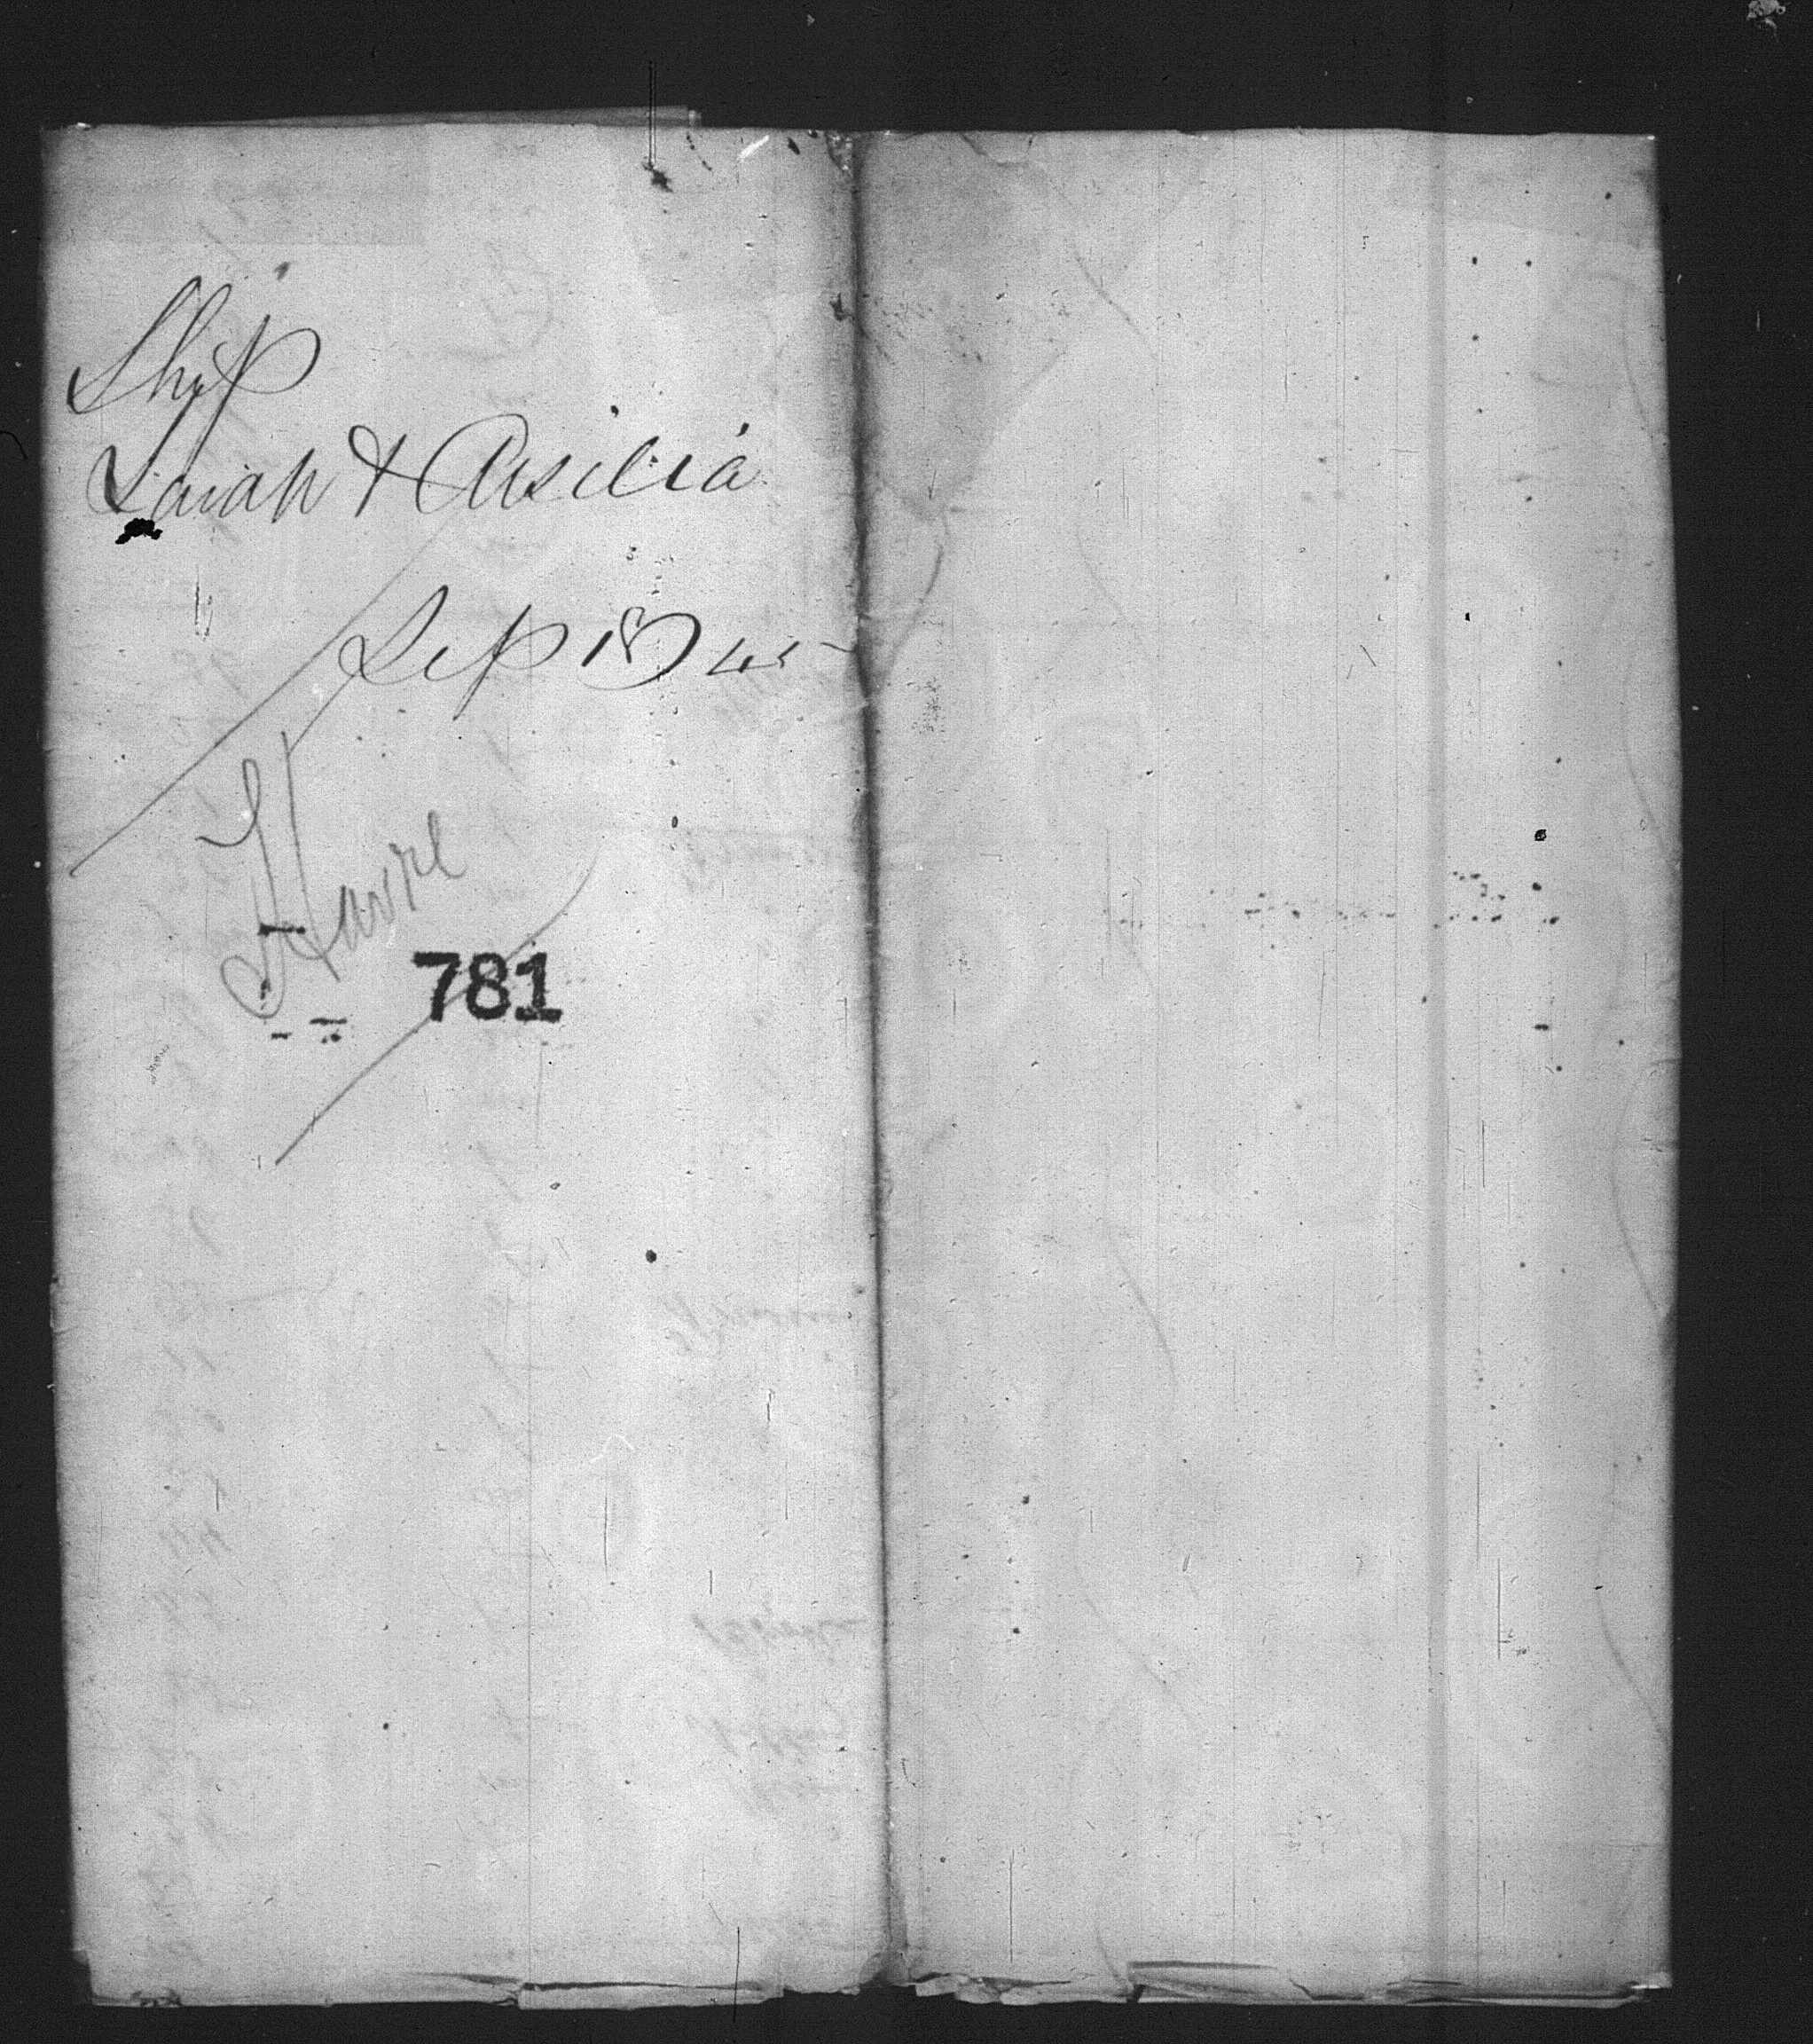 Ship
Sarah & Arsilia
Sep 18 45
Havre
781